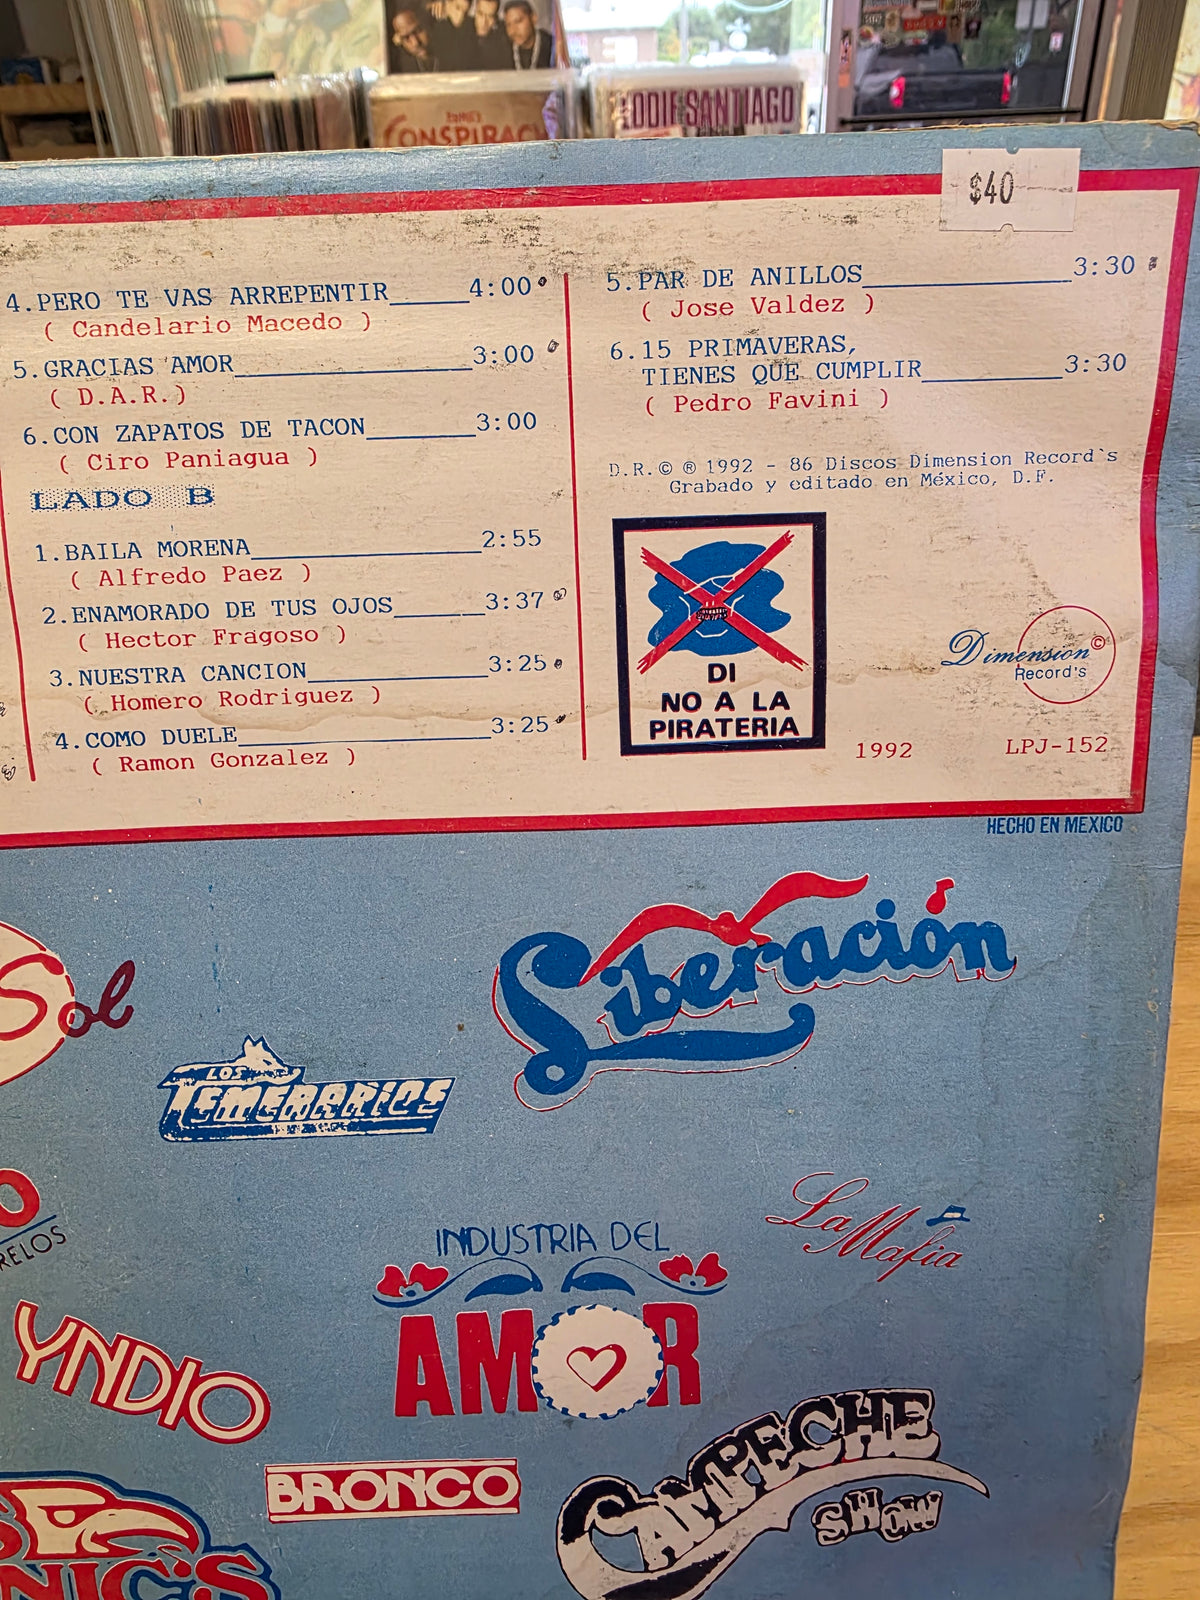 CONSPIRAC
ODIE SANTIAGO
$40
4.PERO TE VAS ARREPENTIR_____4:00
( Candelario Macedo )
5.GRACIAS AMOR_______________3:00
( D.A.R.)
6.CON ZAPATOS DE TACON_______3:00
( Ciro Paniagua )
LADO B
1.BAILA MORENA_______________2:55
( Alfredo Paez )
2.ENAMORADO DE TUS OJOS______3:37
( Hector Fragoso )
3.NUESTRA CANCION____________3:25
( Homero Rodriguez )
4.COMO DUELE_________________3:25
( Ramon Gonzalez )
5.PAR DE ANILLOS______________3:30
( Jose Valdez )
6.15 PRIMAVERAS,
TIENES QUE CUMPLIR_________3:30
( Pedro Favini )
D.R.© ® 1992 - 86 Discos Dimension Record`s
Grabado y editado en México, D.F.
DI
NO A LA
PIRATERIA
Dimension©
Record's
1992
LPJ-152
HECHO EN MEXICO
Sol
Liberación
LOS
TEMERARIOS
O
RELOS
INDUSTRIA DEL
AMOR
La Mafia
YNDIO
BRONCO
CAMPECHE
SHOW
S
NIC'S